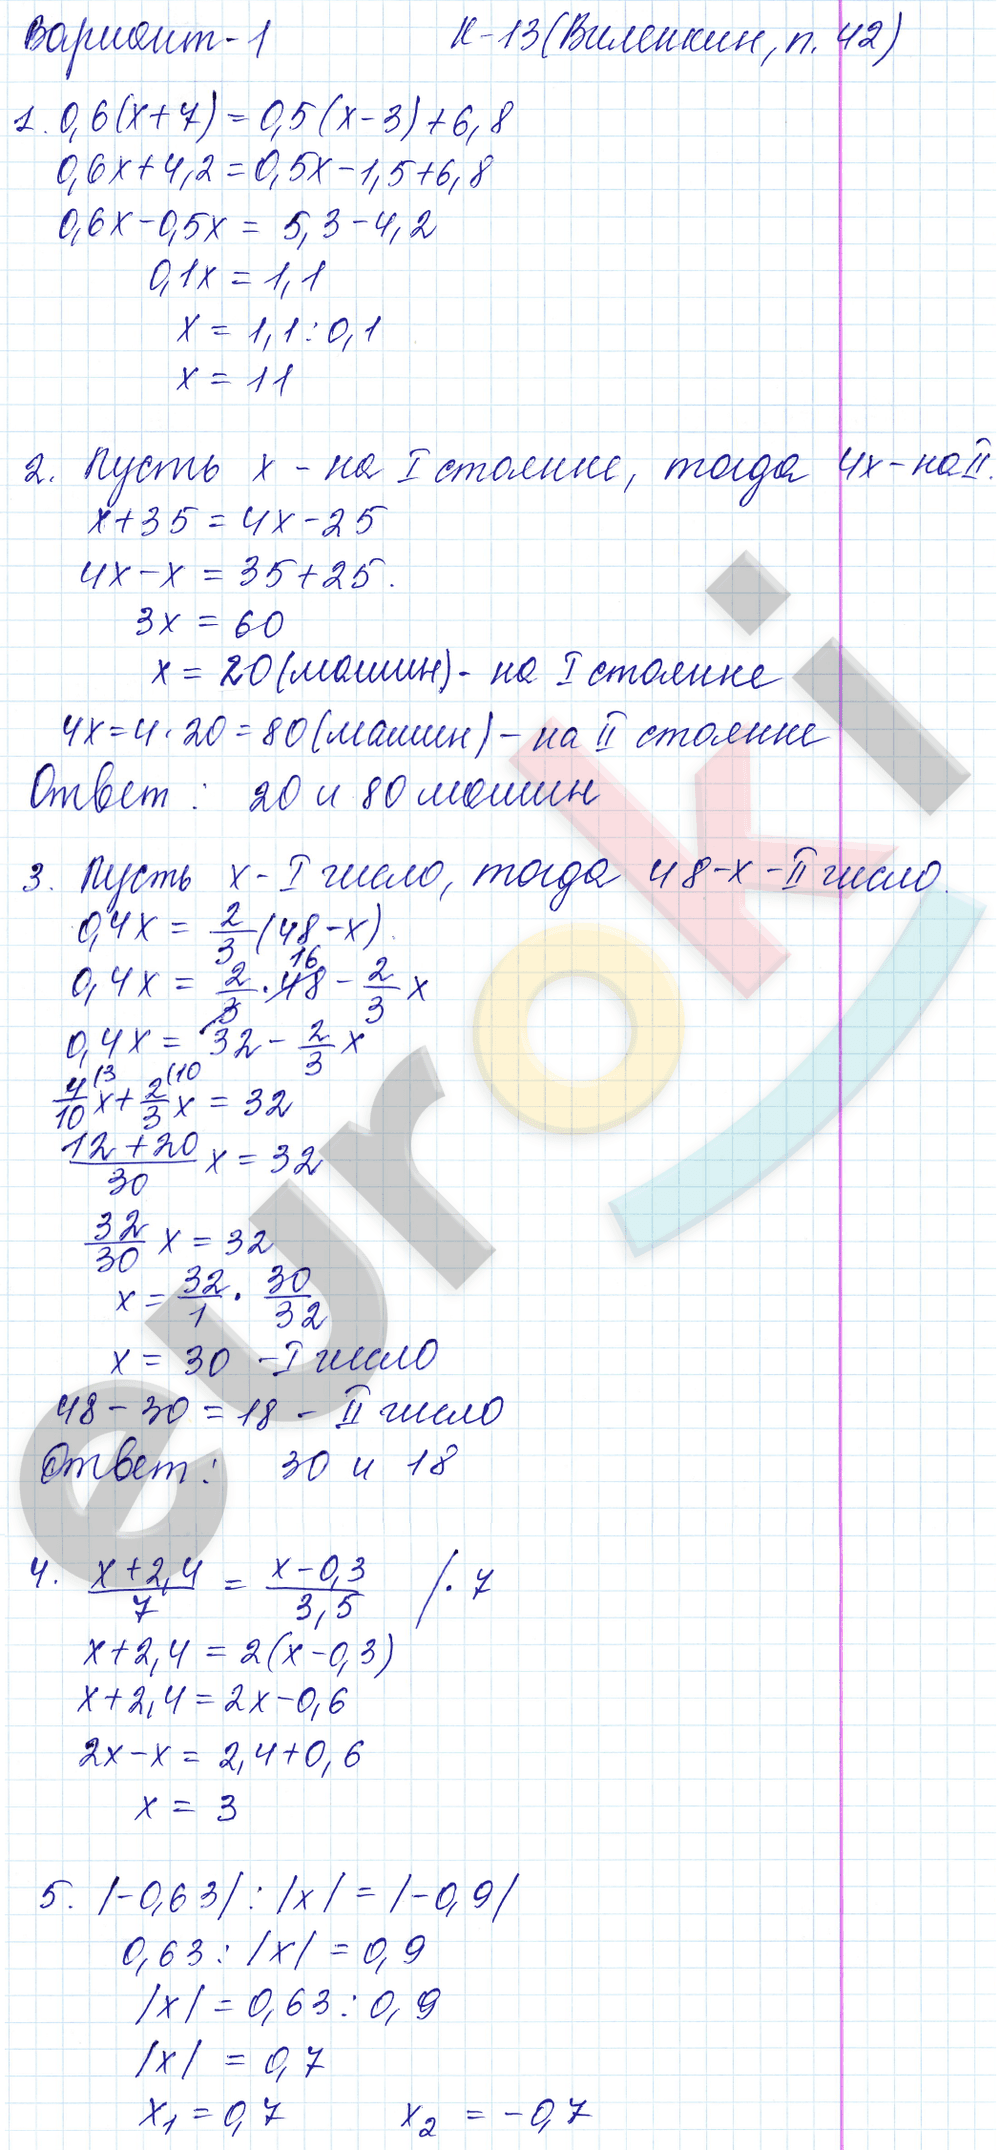 Вариант-1 К-13(Виленкин, п. 42)
1. 0,6(x+7)=0,5(x-3)+6,8
0,6x+4,2=0,5x-1,5+6,8
0,6x-0,5x = 5,3-4,2
0,1x = 1,1
x = 1,1:0,1
x = 11
2. Пусть x - на I стоянке, тогда 4x-на II.
x+35=4x-25
4x-x = 35+25.
3x = 60
x = 20(машин)- на I стоянке
4x=4·20=80(машин)- на II стоянке
Ответ: 20 и 80 машин
3. Пусть x- I число, тогда 48-x -II число.
0,4x = 2/3 (48-x).
0,4x = 2/3 · 48 16 - 2/3 x
0,4x = 32 - 2/3 x
4/10 (3 x + 2/3 (10 x = 32
12+20/30 x = 32
32/30 x = 32
x = 32/1 · 30/32
x = 30 -I число
48-30=18 - II число
Ответ: 30 и 18
4. x+2,4/7 = x-0,3/3,5 /·7
x+2,4=2(x-0,3)
x+2,4=2x-0,6
2x-x = 2,4+0,6
x = 3
5. |-0,63|:|x|=|-0,9|
0,63:|x|=0,9
|x|=0,63:0,9
|x| = 0,7
x₁=0,7 x₂ = -0,7
euroki